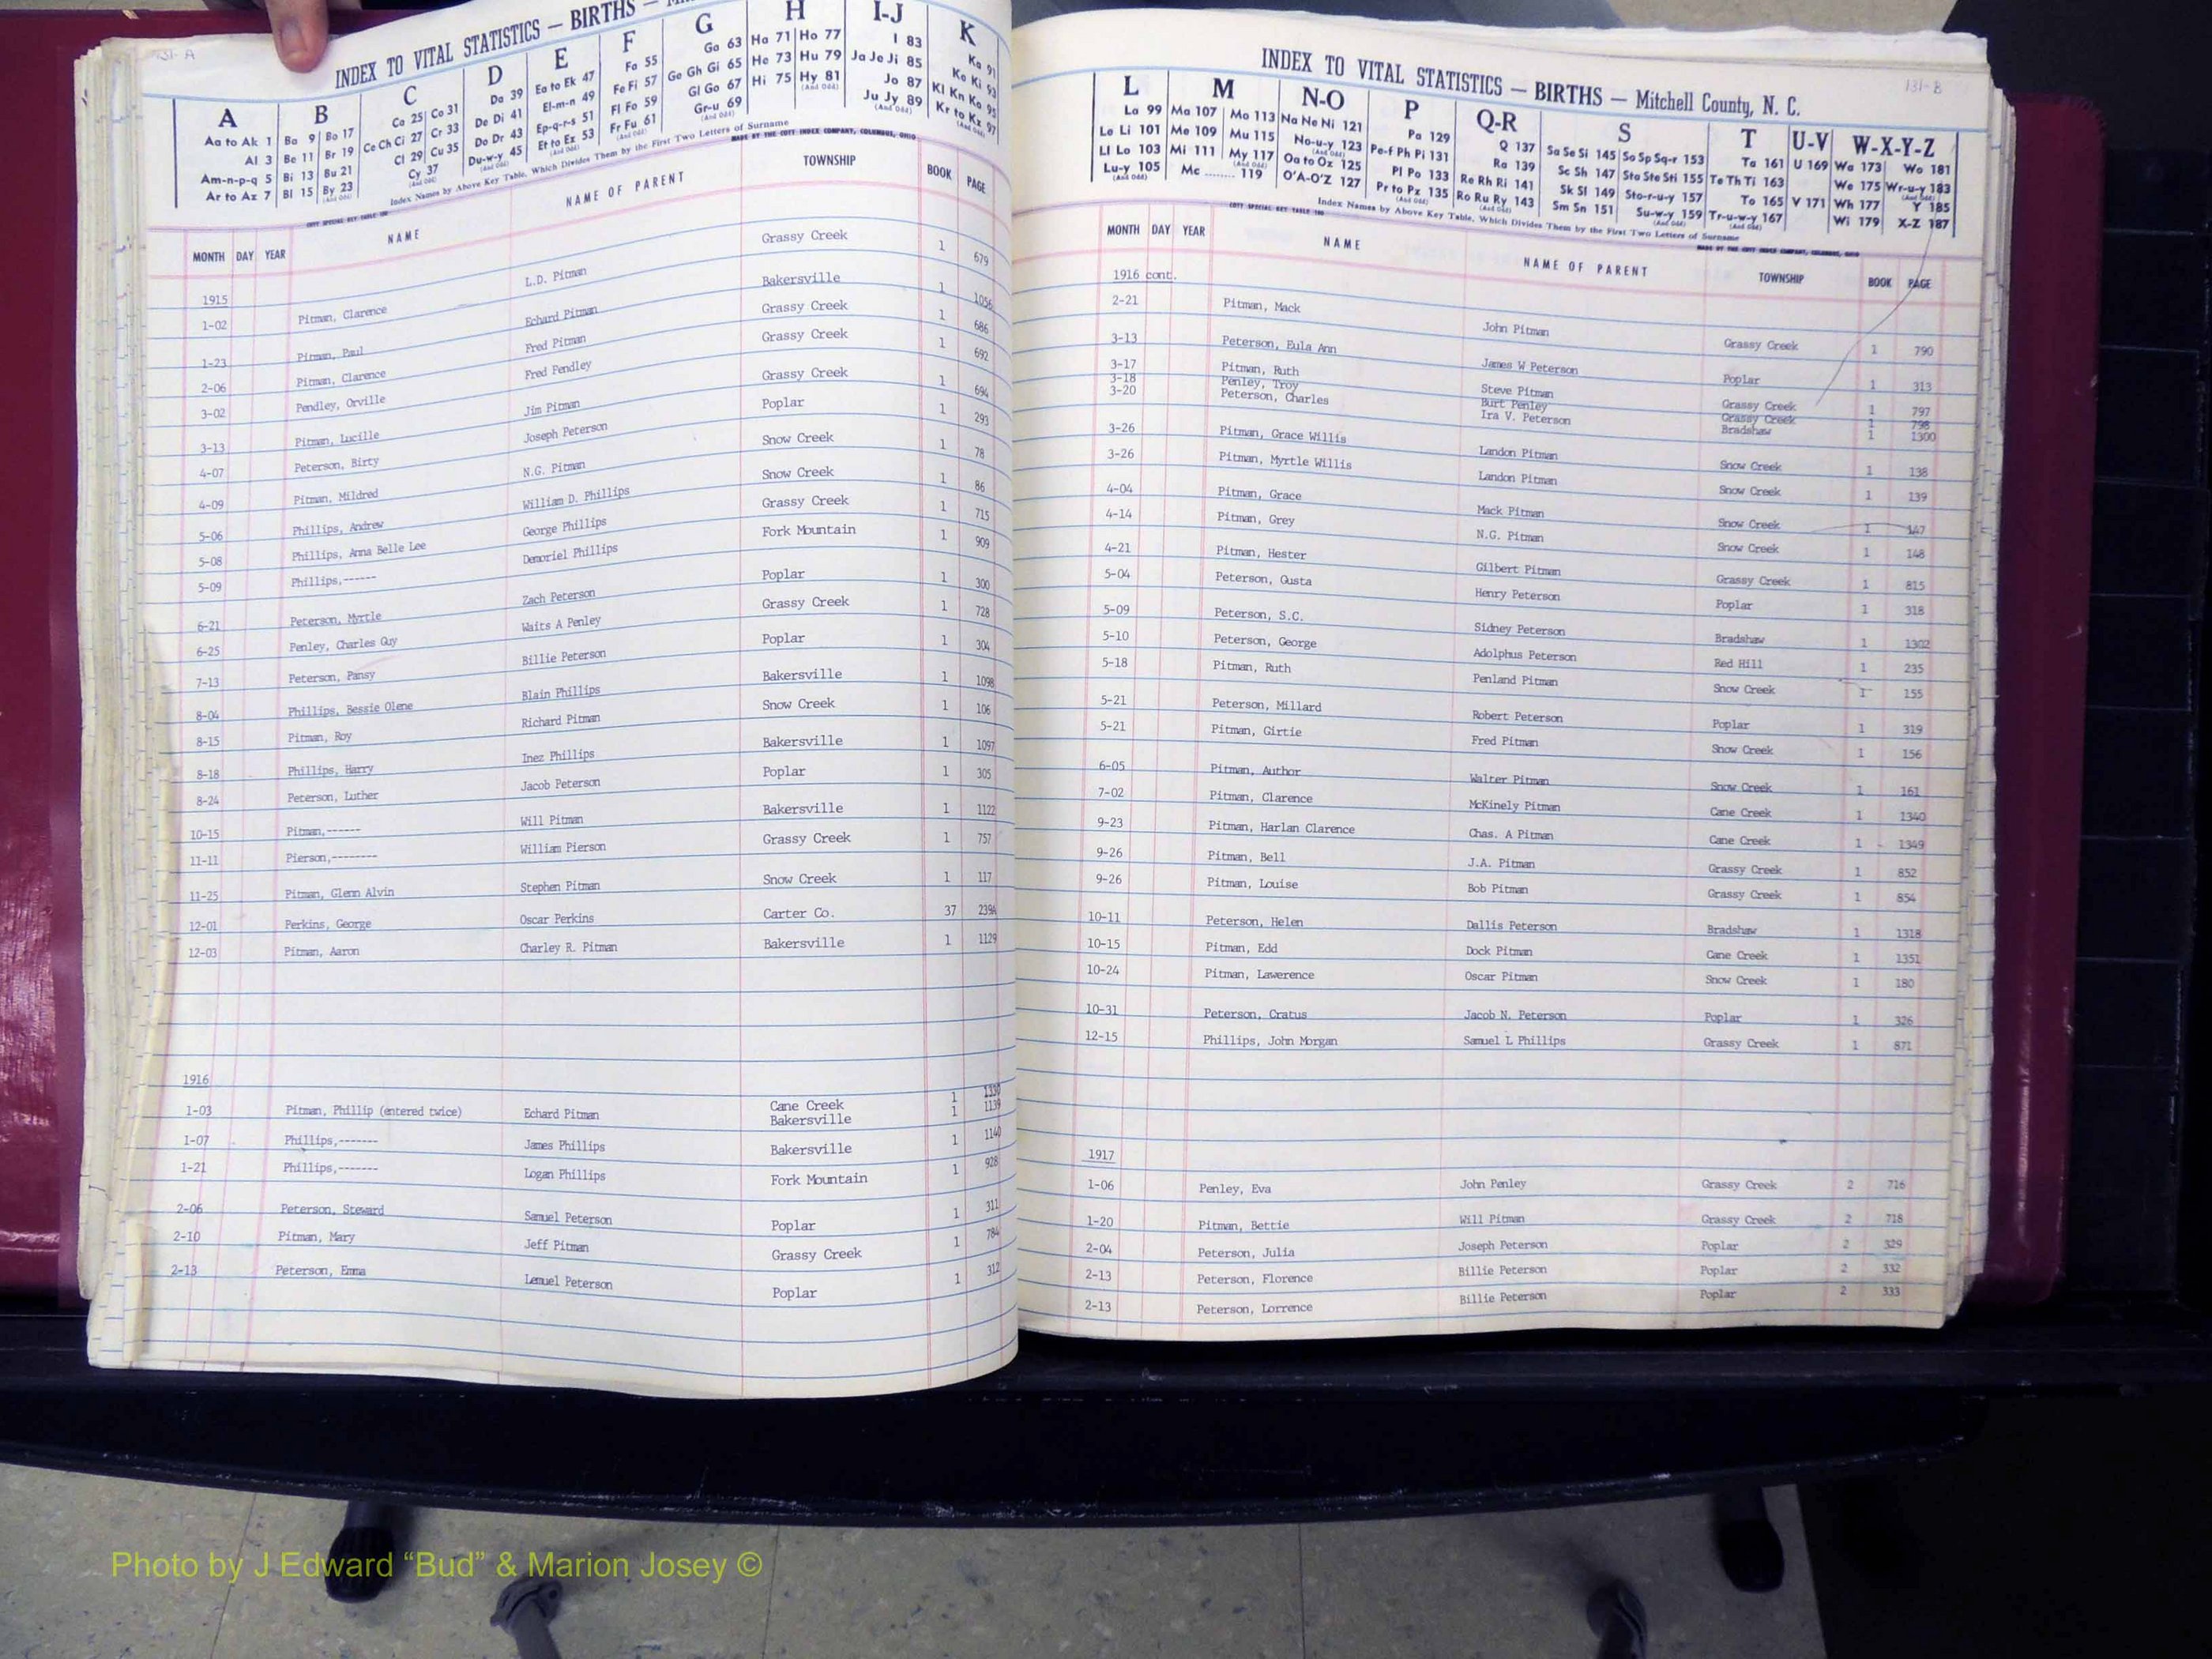 131-A
INDEX TO VITAL STATISTICS — BIRTHS —
A B C D E F G H I-J K
Aa to Ak 1 Ba 9 Bo 17 Ca 25 Co 31 Da 39 Ea to Ek 47 Fa 55 Ga 63 Ha 71 Ho 77 I 83 Ka 91
Al 3 Be 11 Br 19 Ce Ch Ci 27 Cr 33 De Di 41 El-m-n 49 Fe Fi 57 Ge Gh Gi 65 He 73 Hu 79 Ja Je Ji 85 Ke Ki 93
Am-n-p-q 5 Bi 13 Bu 21 Cl 29 Cu 35 Do Dr 43 Ep-q-r-s 51 Fl Fo 59 Gl Go 67 Hi 75 Hy 81 (And Odd) Jo 87 Kl Kn Ko 95
Ar to Az 7 Bl 15 By 23 (And Odd) Cy 37 (And Odd) Du-w-y 45 (And Odd) Et to Ez 53 (And Odd) Fr Fu 61 (And Odd) Gr-u 69 (And Odd) Ju Jy 89 (And Odd) Kr to Kz 97 (And Odd)
COTT SPECIAL KEY TABLE 100 Index Names by Above Key Table, Which Divides Them by the First Two Letters of Surname MADE BY THE COTT INDEX COMPANY, COLUMBUS, OHIO
MONTH DAY YEAR NAME NAME OF PARENT TOWNSHIP BOOK PAGE
1915
1-02 Pitman, Clarence L.D. Pitman Grassy Creek 1 679
1-23 Pitman, Paul Echard Pitman Bakersville 1 1056
2-06 Pitman, Clarence Fred Pitman Grassy Creek 1 686
3-02 Pendley, Orville Fred Pendley Grassy Creek 1 692
3-13 Pitman, Lucille Jim Pitman Grassy Creek 1 694
4-07 Peterson, Birty Joseph Peterson Poplar 1 293
4-09 Pitman, Mildred N.G. Pitman Snow Creek 1 78
5-06 Phillips, Andrew William D. Phillips Snow Creek 1 86
5-08 Phillips, Anna Belle Lee George Phillips Grassy Creek 1 715
5-09 Phillips,------ Demoriel Phillips Fork Mountain 1 909
6-21 Peterson, Myrtle Zach Peterson Poplar 1 300
6-25 Penley, Charles Guy Waits A Penley Grassy Creek 1 728
7-13 Peterson, Pansy Billie Peterson Poplar 1 304
8-04 Phillips, Bessie Olene Blain Phillips Bakersville 1 1098
8-15 Pitman, Roy Richard Pitman Snow Creek 1 106
8-18 Phillips, Harry Inez Phillips Bakersville 1 1097
8-24 Peterson, Luther Jacob Peterson Poplar 1 305
10-15 Pitman,------ Will Pitman Bakersville 1 1122
11-11 Pierson,-------- William Pierson Grassy Creek 1 757
11-25 Pitman, Glenn Alvin Stephen Pitman Snow Creek 1 117
12-01 Perkins, George Oscar Perkins Carter Co. 37 239A
12-03 Pitman, Aaron Charley R. Pitman Bakersville 1 1129
1916
1-03 Pitman, Phillip (entered twice) Echard Pitman Cane Creek 1 1330
Bakersville 1 1139
1-07 Phillips,------- James Phillips Bakersville 1 1140
1-21 Phillips,------- Logan Phillips Fork Mountain 1 928
2-06 Peterson, Steward Samuel Peterson Poplar 1 311
2-10 Pitman, Mary Jeff Pitman Grassy Creek 1 784
2-13 Peterson, Emma Lemuel Peterson Poplar 1 312
131-B
INDEX TO VITAL STATISTICS — BIRTHS — Mitchell County, N. C.
L M N-O P Q-R S T U-V W-X-Y-Z
La 99 Ma 107 Mo 113 Na Ne Ni 121 Pa 129 Q 137 Sa Se Si 145 So Sp Sq-r 153 Ta 161 U 169 Wa 173 Wo 181
Le Li 101 Me 109 Mu 115 No-u-y 123 (And Odd) Pe-f Ph Pi 131 Ra 139 Sc Sh 147 Sta Ste Sti 155 Te Th Ti 163 We 175 Wr-u-y 183 (And Odd)
Ll Lo 103 Mi 111 My 117 (And Odd) Oa to Oz 125 Pl Po 133 Re Rh Ri 141 Sk Sl 149 Sto-r-u-y 157 To 165 V 171 Wh 177 Y 185
Lu-y 105 (And Odd) Mc ........ 119 O'A-O'Z 127 Pr to Pz 135 Ro Ru Ry 143 (And Odd) Sm Sn 151 Su-w-y 159 (And Odd) Tr-u-w-y 167 (And Odd) Wi 179 X-Z 187
COTT SPECIAL KEY TABLE 100 Index Names by Above Key Table, Which Divides Them by the First Two Letters of Surname MADE BY THE COTT INDEX COMPANY, COLUMBUS, OHIO
MONTH DAY YEAR NAME NAME OF PARENT TOWNSHIP BOOK PAGE
1916 cont.
2-21 Pitman, Mack John Pitman Grassy Creek 1 790
3-13 Peterson, Eula Ann James W Peterson Poplar 1 313
3-17 Pitman, Ruth Steve Pitman Grassy Creek 1 797
3-18 Penley, Troy Burt Penley Grassy Creek 1 798
3-20 Peterson, Charles Ira V. Peterson Bradshaw 1 1300
3-26 Pitman, Grace Willis Landon Pitman Snow Creek 1 138
3-26 Pitman, Myrtle Willis Landon Pitman Snow Creek 1 139
4-04 Pitman, Grace Mack Pitman Snow Creek 1 147
4-14 Pitman, Grey N.G. Pitman Snow Creek 1 148
4-21 Pitman, Hester Gilbert Pitman Grassy Creek 1 815
5-04 Peterson, Gusta Henry Peterson Poplar 1 318
5-09 Peterson, S.C. Sidney Peterson Bradshaw 1 1302
5-10 Peterson, George Adolphus Peterson Red Hill 1 235
5-18 Pitman, Ruth Penland Pitman Snow Creek 1 155
5-21 Peterson, Millard Robert Peterson Poplar 1 319
5-21 Pitman, Girtie Fred Pitman Snow Creek 1 156
6-05 Pitman, Author Walter Pitman Snow Creek 1 161
7-02 Pitman, Clarence McKinely Pitman Cane Creek 1 1340
9-23 Pitman, Harlan Clarence Chas. A Pitman Cane Creek 1 1349
9-26 Pitman, Bell J.A. Pitman Grassy Creek 1 852
9-26 Pitman, Louise Bob Pitman Grassy Creek 1 854
10-11 Peterson, Helen Dallis Peterson Bradshaw 1 1318
10-15 Pitman, Edd Dock Pitman Cane Creek 1 1351
10-24 Pitman, Lawerence Oscar Pitman Snow Creek 1 180
10-31 Peterson, Cratus Jacob N. Peterson Poplar 1 326
12-15 Phillips, John Morgan Samuel L Phillips Grassy Creek 1 871
1917
1-06 Penley, Eva John Penley Grassy Creek 2 716
1-20 Pitman, Bettie Will Pitman Grassy Creek 2 718
2-04 Peterson, Julia Joseph Peterson Poplar 2 329
2-13 Peterson, Florence Billie Peterson Poplar 2 332
2-13 Peterson, Lorrence Billie Peterson Poplar 2 333
Photo by J Edward “Bud” & Marion Josey ©